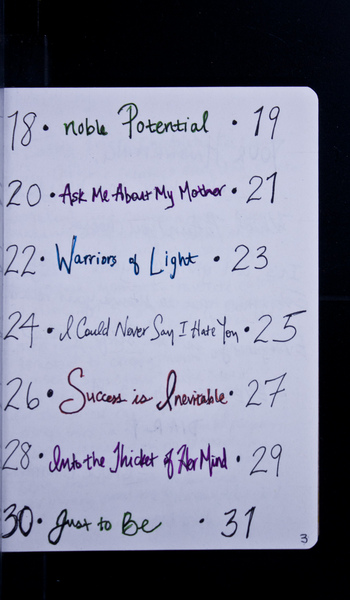 18 • noble Potential • 19
20 • Ask Me About My Mother • 21
22 • Warriors of Light • 23
24 • I Could Never Say I Hate You • 25
26 • Success is Inevitable • 27
28 • Into the Thicket of Her Mind • 29
30 • Just to Be • 31
3